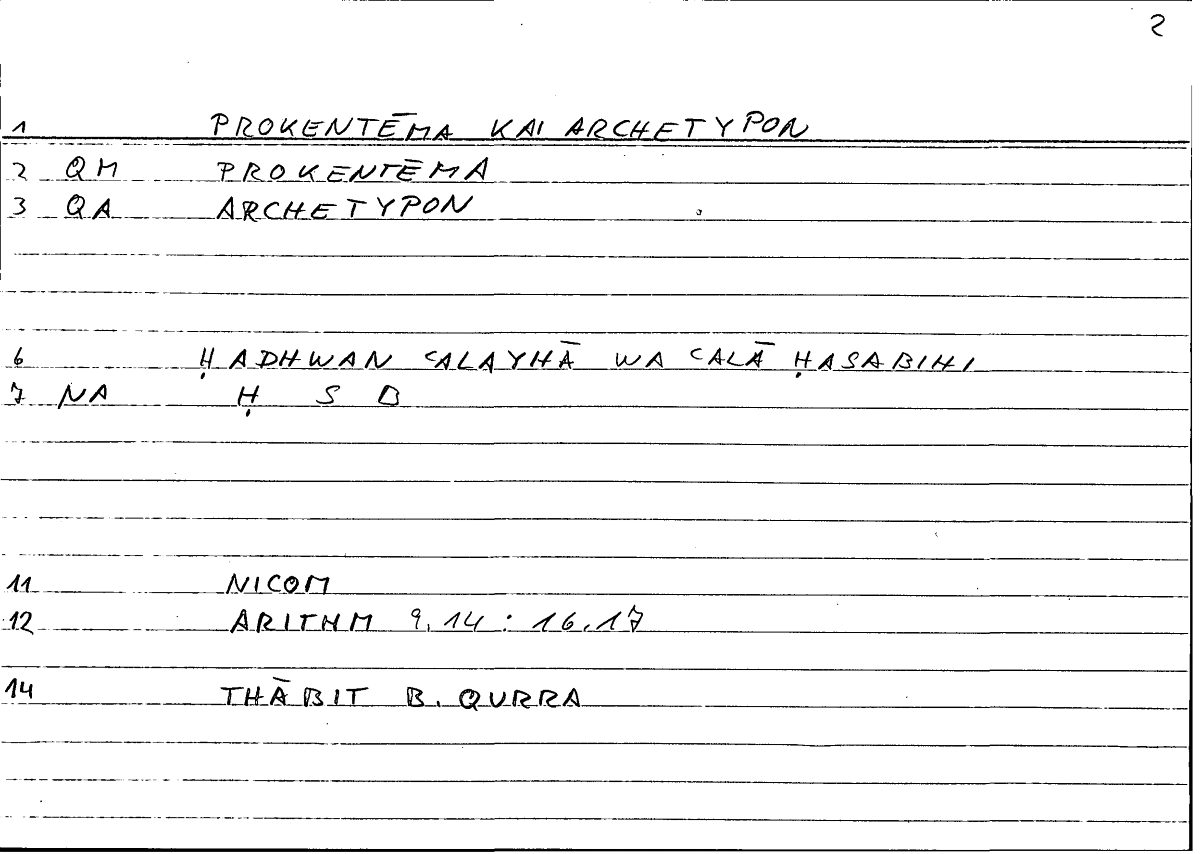 2
1 PROKENTĒMA KAI ARCHETYPON
2 QM PROKENTĒMA
3 QA ARCHETYPON
6 ḤADHWAN ʿALAYHĀ WA ʿALĀ ḤASABIHI
7 NA Ḥ S B
11 NICOM
12 ARITHM 9,14 : 16,17
14 THĀBIT B. QURRA